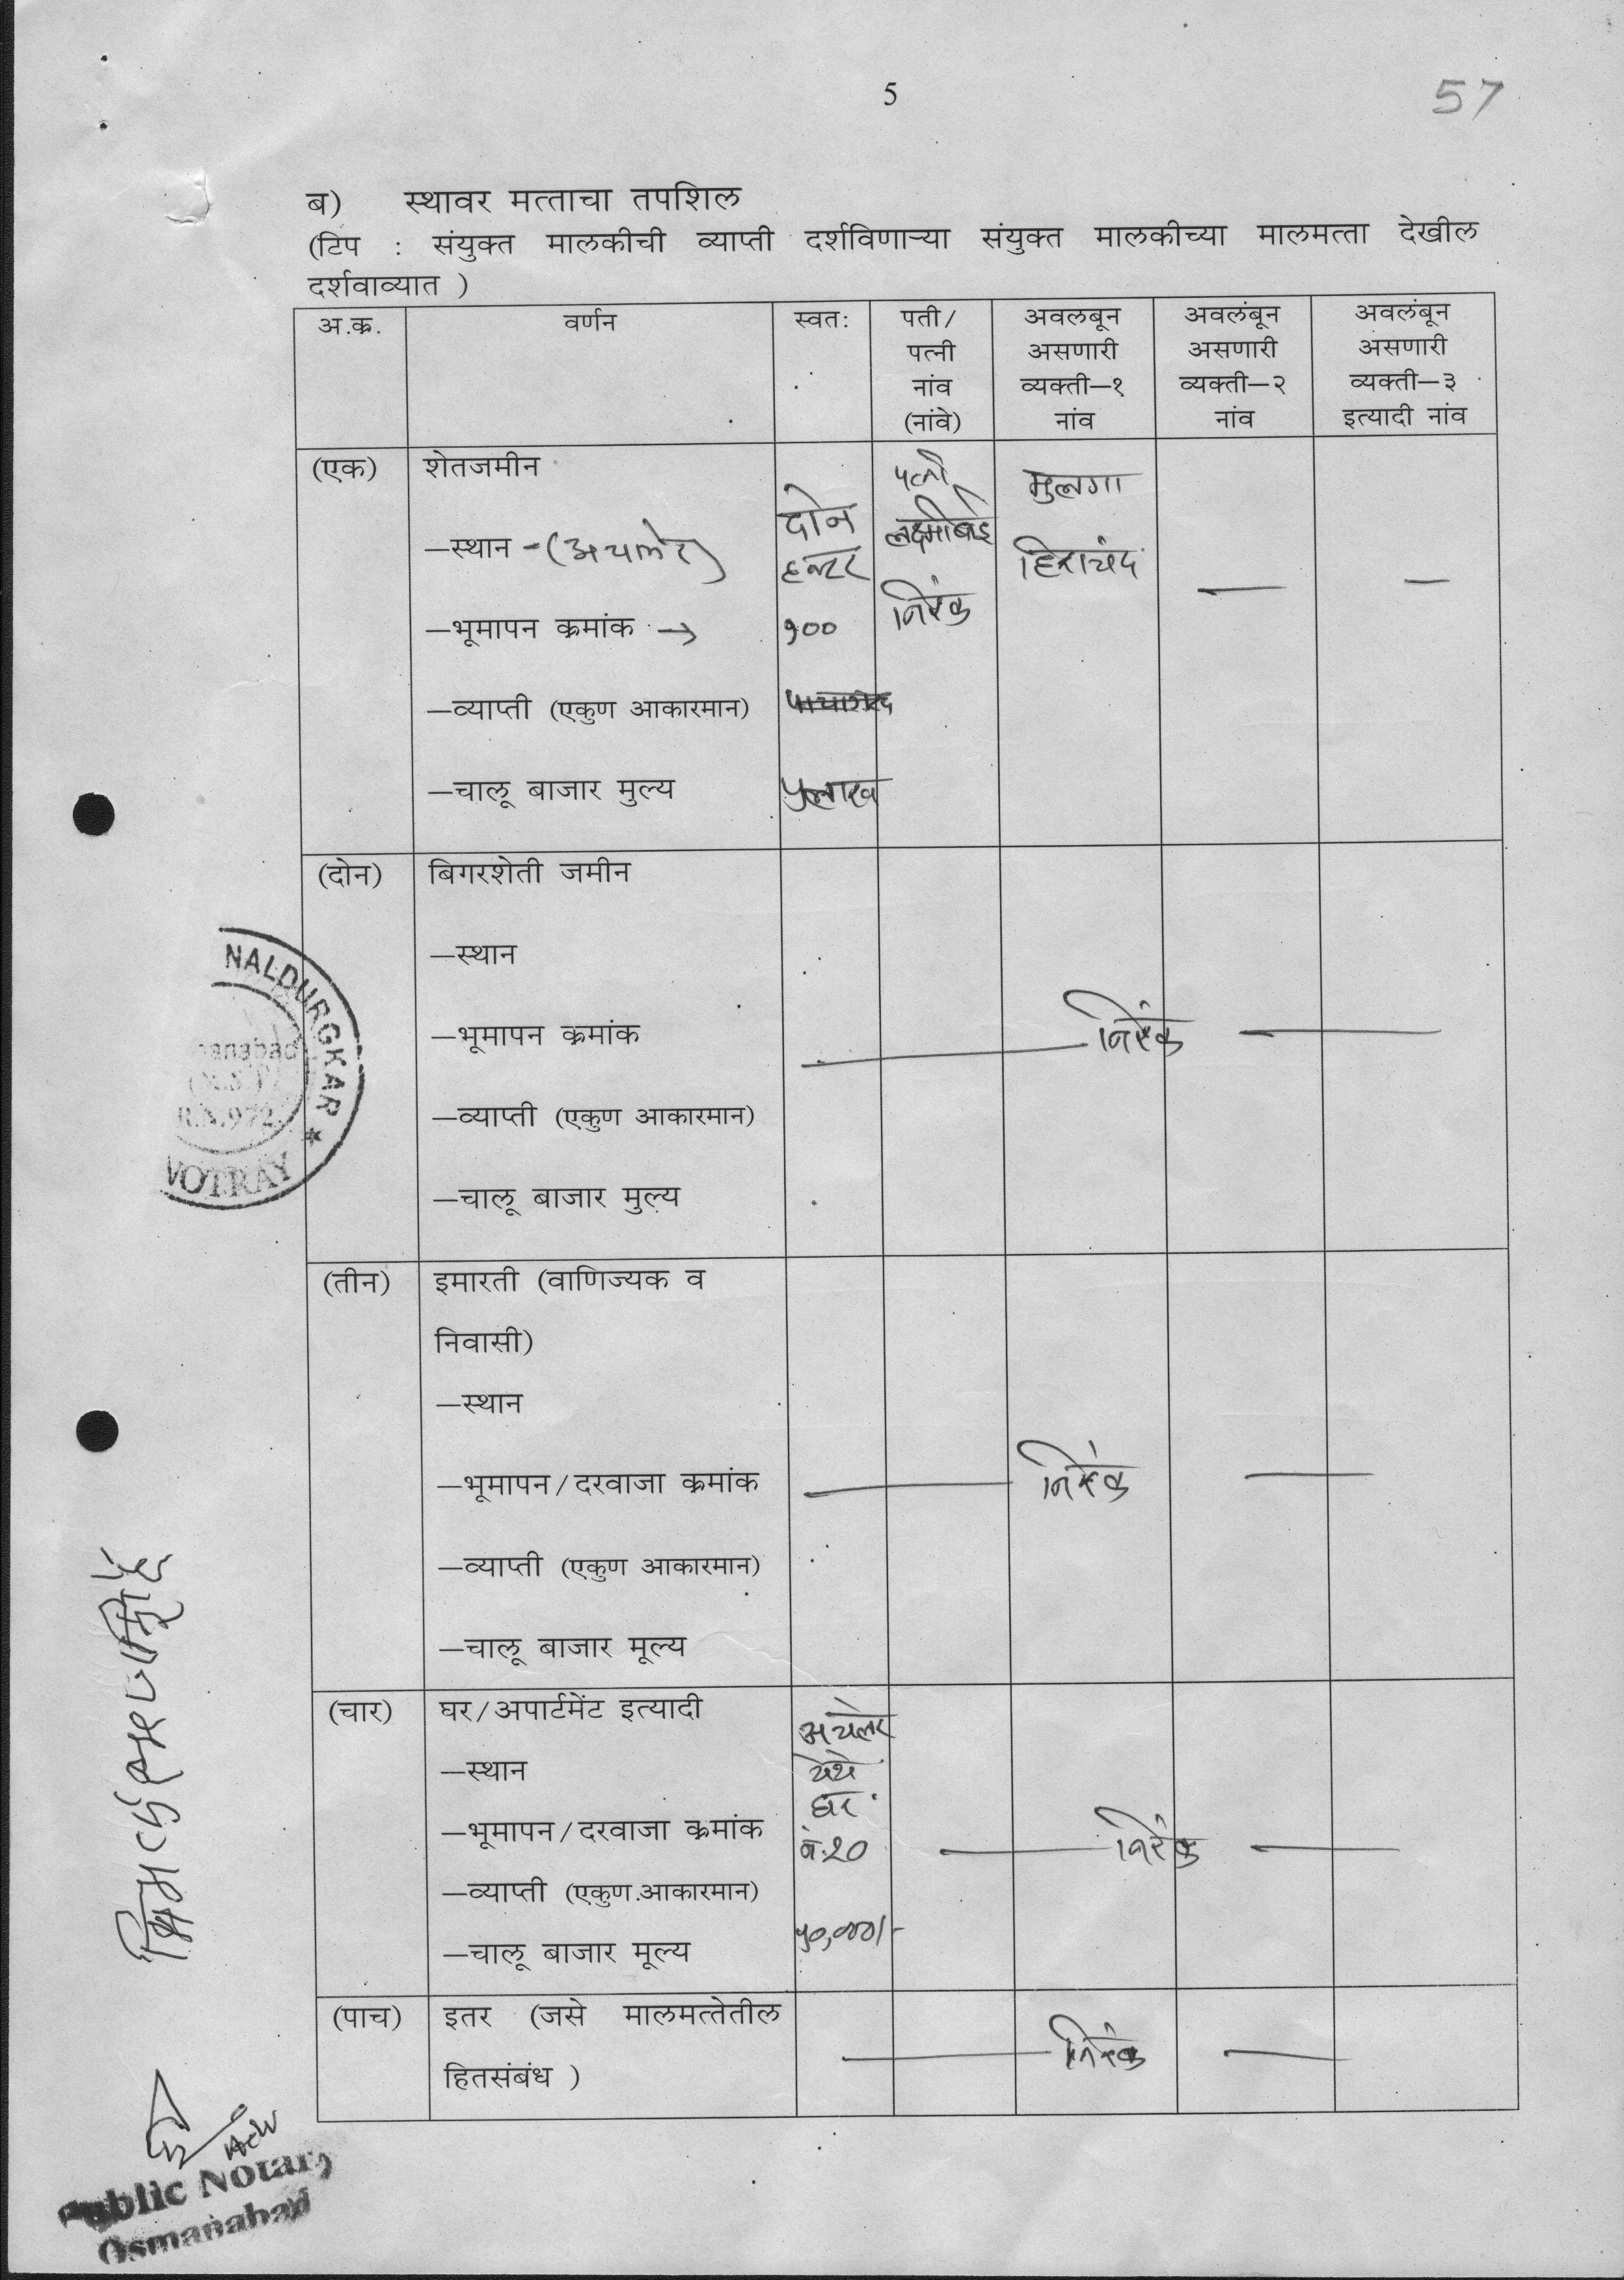 5
57
ब) स्थावर मत्ताचा तपशिल
(टिप : संयुक्त मालकीची व्याप्ती दर्शविणाऱ्या संयुक्त मालकीच्या मालमत्ता देखील
दर्शवाव्यात )
अ.क्र. वर्णन स्वतः पती/ पत्नी नांव (नांवे) अवलबून असणारी व्यक्ती–१ नांव अवलंबून असणारी व्यक्ती–२ नांव अवलंबून असणारी व्यक्ती–३ इत्यादी नांव
(एक) शेतजमीन पत्नी मुलगा
–स्थान -(अचलेर) दोन हेक्टर लक्ष्मीबाई हिराचंद — —
–भूमापन क्रमांक → १०० निरंक
–व्याप्ती (एकुण आकारमान)
–चालू बाजार मुल्य ५लाख
(दोन) बिगरशेती जमीन
–स्थान
–भूमापन क्रमांक — निरंक —
–व्याप्ती (एकुण आकारमान)
–चालू बाजार मुल्य
(तीन) इमारती (वाणिज्यक व
निवासी)
–स्थान
–भूमापन/दरवाजा क्रमांक — निरंक —
–व्याप्ती (एकुण आकारमान)
–चालू बाजार मूल्य
(चार) घर/अपार्टमेंट इत्यादी अचलेर
–स्थान येथे घर
–भूमापन/दरवाजा क्रमांक नं.२० — निरंक —
–व्याप्ती (एकुण आकारमान)
–चालू बाजार मूल्य ५०,०००/-
(पाच) इतर (जसे मालमत्तेतील — निरंक —
हितसंबंध )
NALDURGKAR ★
R.N.972
NOTRAY
Public Notary
Osmanabad